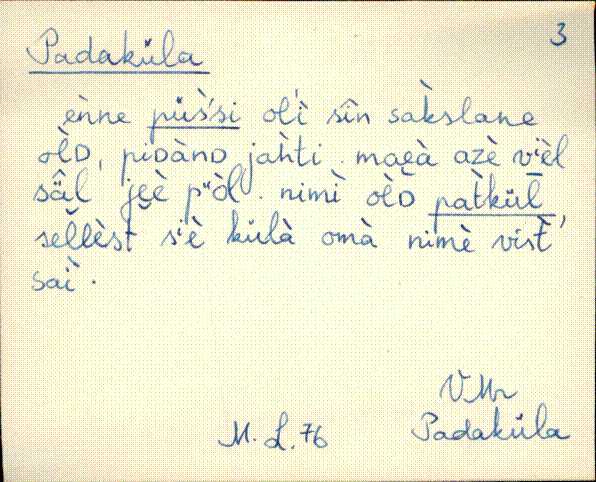 3
Padaküla
ènne püs̀'si ol'ì sîn sàkslane
òlD, piDànD jahti. maeà azè vièl
sä̂l jeè pòl. nimì òlD pàtkül̄,
sellèst s'è külà omà nimè vist'
saì.
V.Mr
M. L. 76 Padaküla